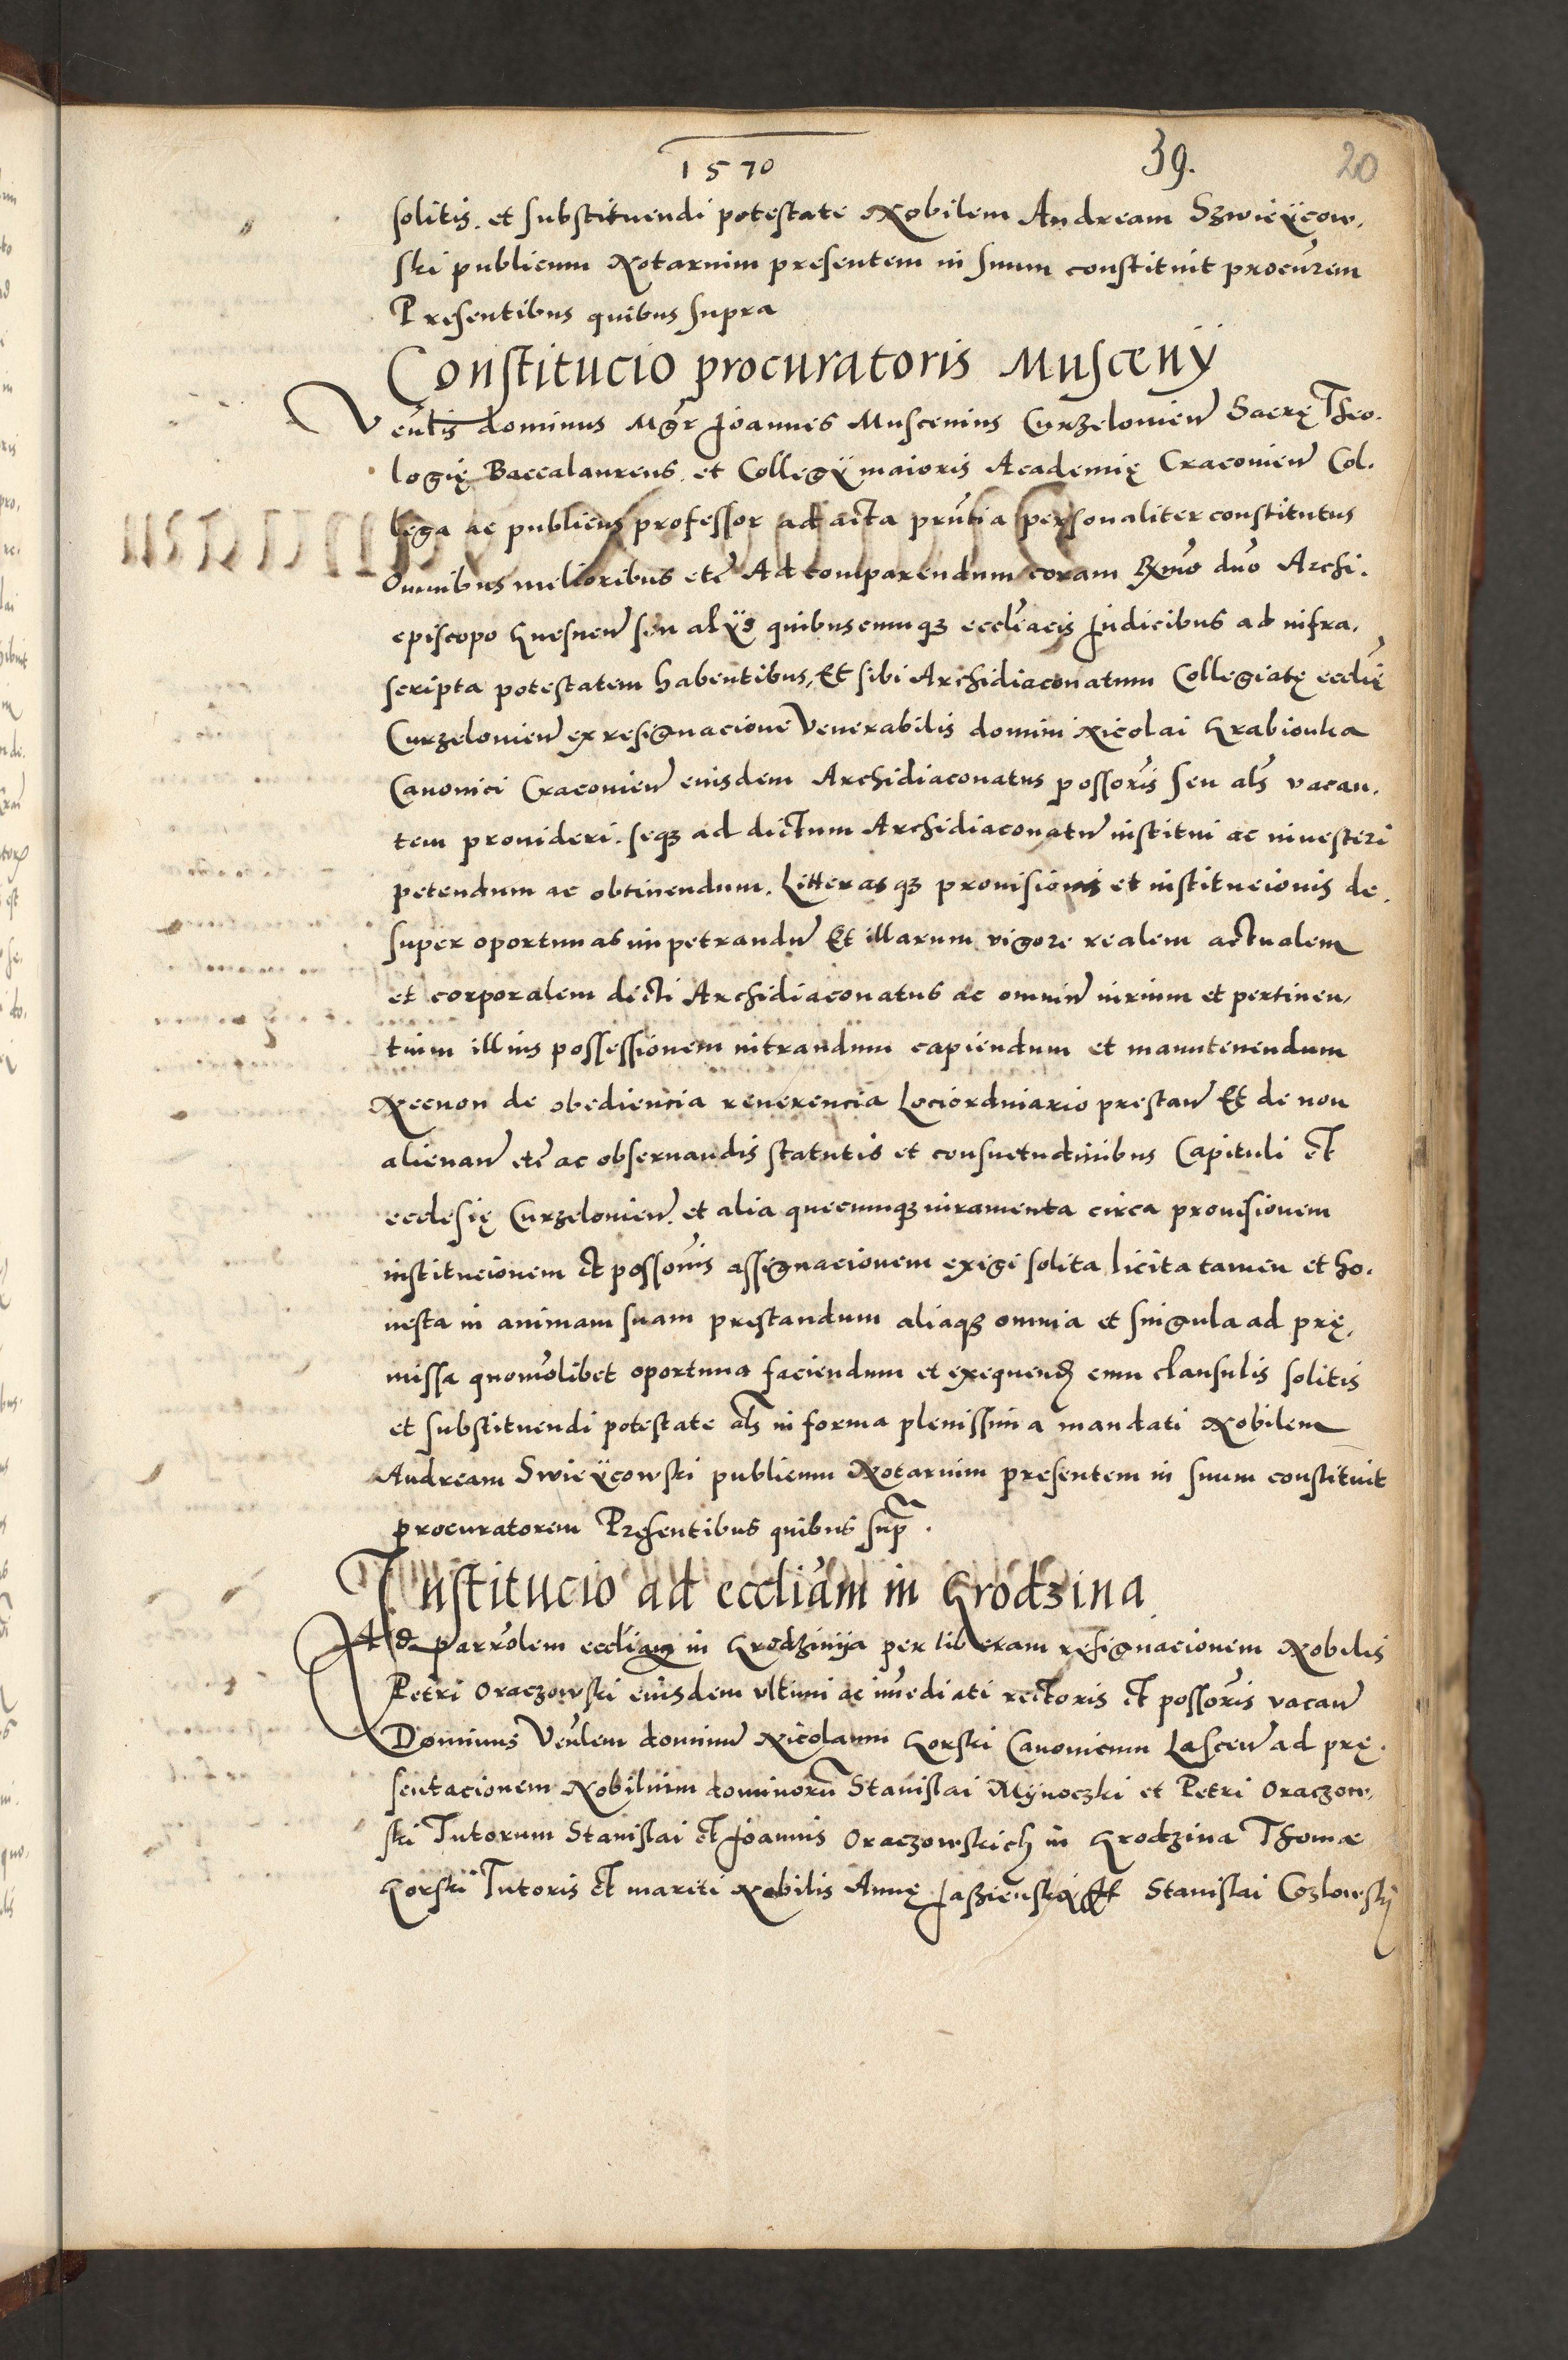 1570 39. 20
solitis. et substituendi potestate Nobilem Andream Szwieÿcow,
ski publicum Notarium presentem in suum constituit procurem
Presentibus quibus supra
Constitucio procuratoris Muscenÿ
Venlis dominus Mgr Joannes Muscenius Curzelonien Sacrę Theo.
logię Baccalaureus. et Collegÿ maioris Academię Cracovien Col.
lega ac publicus professor ad acta pruntia personaliter constitutus
Omnibus melioribus etc Ad comparendum coram Rxmo dno Archi.
episcopo Gnesnen seu alÿs quibuscumq3 eccliacis Judicibus ad infra,
scripta potestatem habentibus, Et sibi Archidiaconatum Collegiatę ecclię
Curzelonien ex resignacione Venerabilis domini Nicolai Grabionka
Canonici Cracovien eiusdem Archidiaconatus possoris seu als vacan,
tem provideri. seq3 ad dictum Archidiaconatu institui ac investiri
petendum ac obtinendum. Litteras q3 provisionis et institucionis de.
super oportunas impetrandu Et illarum vigore realem actualem
et corporalem dicti Archidiaconatus ac omniu iurium et pertinen,
tium illius possessionem intrandum capiendum et manutenendum
Necnon de obediencia reverencia Lociordinario prestan Et de non
alienan etc ac observandis statutis et consuetudinibus Capituli et
ecclesię Curzelonien. et alia quecumq3 iuramenta circa provisionem
institucionem et possonis assignacionem exigi solita licita tamen et ho.
nesta in animam suam prestandum aliaq3 omnia et singula ad prę,
missa quomolibet oportuna faciendum et exequend cum clausulis solitis
et substituendi potestate als in forma plenissima mandati Nobilem
Andream Swieÿcowski publicum Notarium presentem in suum constituit
procuratorem Presentibus quibus sup.
Institucio ad eccliam in Grodzina
Ad parrolem eccliam in Grodzinija per liberam resignacionem Nobilis
Petri Oraczowski eiusdem ultimi ac imediati rectoris et possoris vacan
Dominus Venlem dominu Nicolaum Gorski Canonicum Lascen ad prę.
sentacionem Nobilium dominoru Stanislai Mÿnoczki et Petri Oraczow,
ski Tutorum Stanislai et Joannis Oraczowskich in Grodzina Thomæ
Gorski Tutoris et mariti Nobilis Annę Jaszienski Stanislai Cozlowskÿ